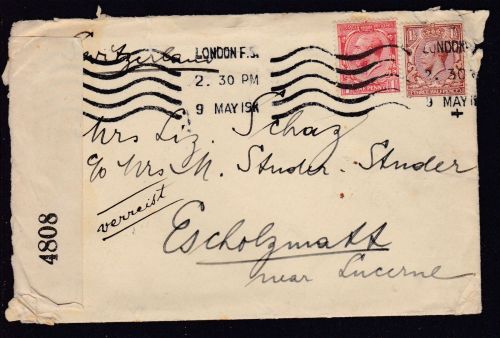 Switzerland
LONDON F.S.
2. 30 PM
9 MAY 19
LONDON
2. 30
9 MAY 19
ONE PENNY
Mrs Liz. Schaz
c/o Mrs M. Studer-Studer
verreist
Escholzmatt
near Lucerne
4808